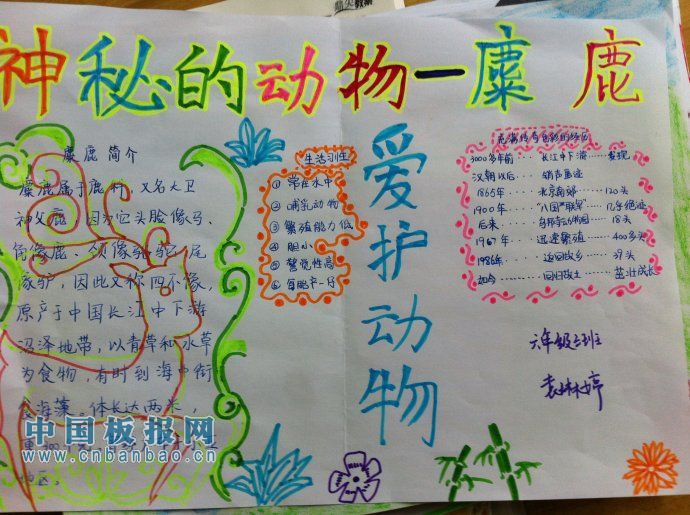 神秘的动物一麋鹿
麋鹿简介
麋鹿属于鹿科，又名大卫
神父鹿，因为它头脸像马、
角像鹿、颈像骆驼、尾
像驴，因此又称四不像，
原产于中国长江中下游
沼泽地带，以青草和水草
为食物，有时到海中衔
食海藻。体长达两米，
生活习性
①常在水中
②哺乳动物
③繁殖能力低
④胆小
⑤警觉性高
⑥每胎产一仔
爱护动物
充满传奇色彩的经历
3000多年前····长江中下游·····发现
汉朝以后····销声匿迹
1865年····北京南郊····120头
1900年····八国联军····几乎绝迹
后来····乌邦寺动物园····18头
1967年····迅速繁殖····400多头
1986年····返回故乡····39头
如今····回归故土····茁壮成长
六年级三班
袁林婷
中国板报网
www.cnbanbao.cn